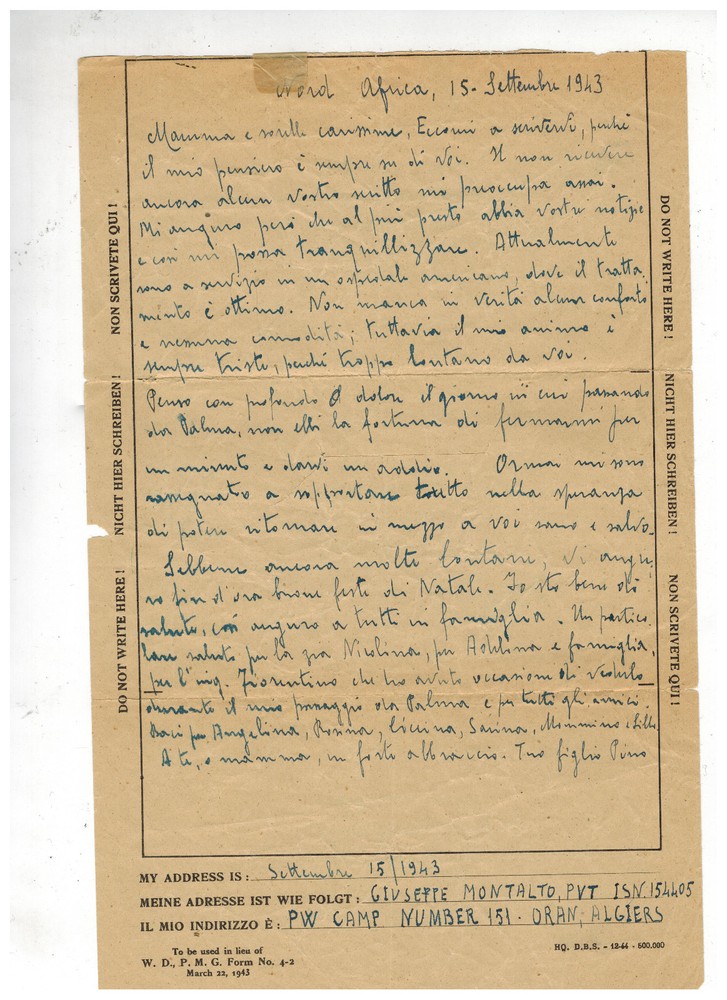 Nord Africa, 15 - Settembre 1943
Mamma e sorelle carissime, Eccomi a scrivervi, perché
il mio pensiero è sempre su di voi. Il non ricevere
ancora alcun vostro scritto mi preoccupa assai.
Mi auguro però che al più presto abbia vostre notizie
e così mi possa tranquillizzare. Attualmente
sono a servizio in un ospedale americano, dove il tratta-
mento è ottimo. Non manca in verità alcun conforto
e nessuna comodità; tuttavia il mio animo è
sempre triste, perché troppo lontano da voi.
Penso con profondo dolore il giorno in cui passando
da Palma, non ebbi la fortuna di fermarmi per
un minuto e darvi un addio. Ormai mi sono
rassegnato a sopportare tutto nella speranza
di potere ritornare in mezzo a voi sano e salvo.
Sebbene ancora molto lontane, vi augu-
ro fin d'ora buone feste di Natale. Io sto bene di
salute, così auguro a tutti in famiglia. Un partico-
lare saluto per la zia Nicolina, per Adelina e famiglia,
per l'ing. Fiorentino che ho avuto occasione di vederlo
durante il mio passaggio da Palma e per tutti gli amici.
Baci per Angelina, Rosina, Ciccina, Sarina, Mimmino e Lillo
A te, o mamma, un forte abbraccio. Tuo figlio Pino
NON SCRIVETE QUI !
NICHT HIER SCHREIBEN !
DO NOT WRITE HERE !
DO NOT WRITE HERE !
NICHT HIER SCHREIBEN !
NON SCRIVETE QUI !
MY ADDRESS IS : Settembre 15/1943
MEINE ADRESSE IST WIE FOLGT : GIUSEPPE MONTALTO, PVT ISN. 154405
IL MIO INDIRIZZO È : PW CAMP NUMBER 151 - ORAN, ALGIERS
To be used in lieu of
W. D., P. M. G. Form No. 4-2
March 22, 1943
HQ. D.B.S. - 12-44 - 500.000